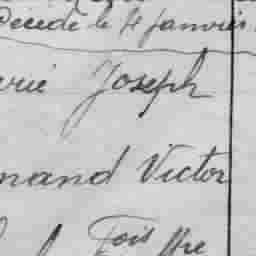 Décédé le 4 janvier
erie Joseph
nand Victor
Fois